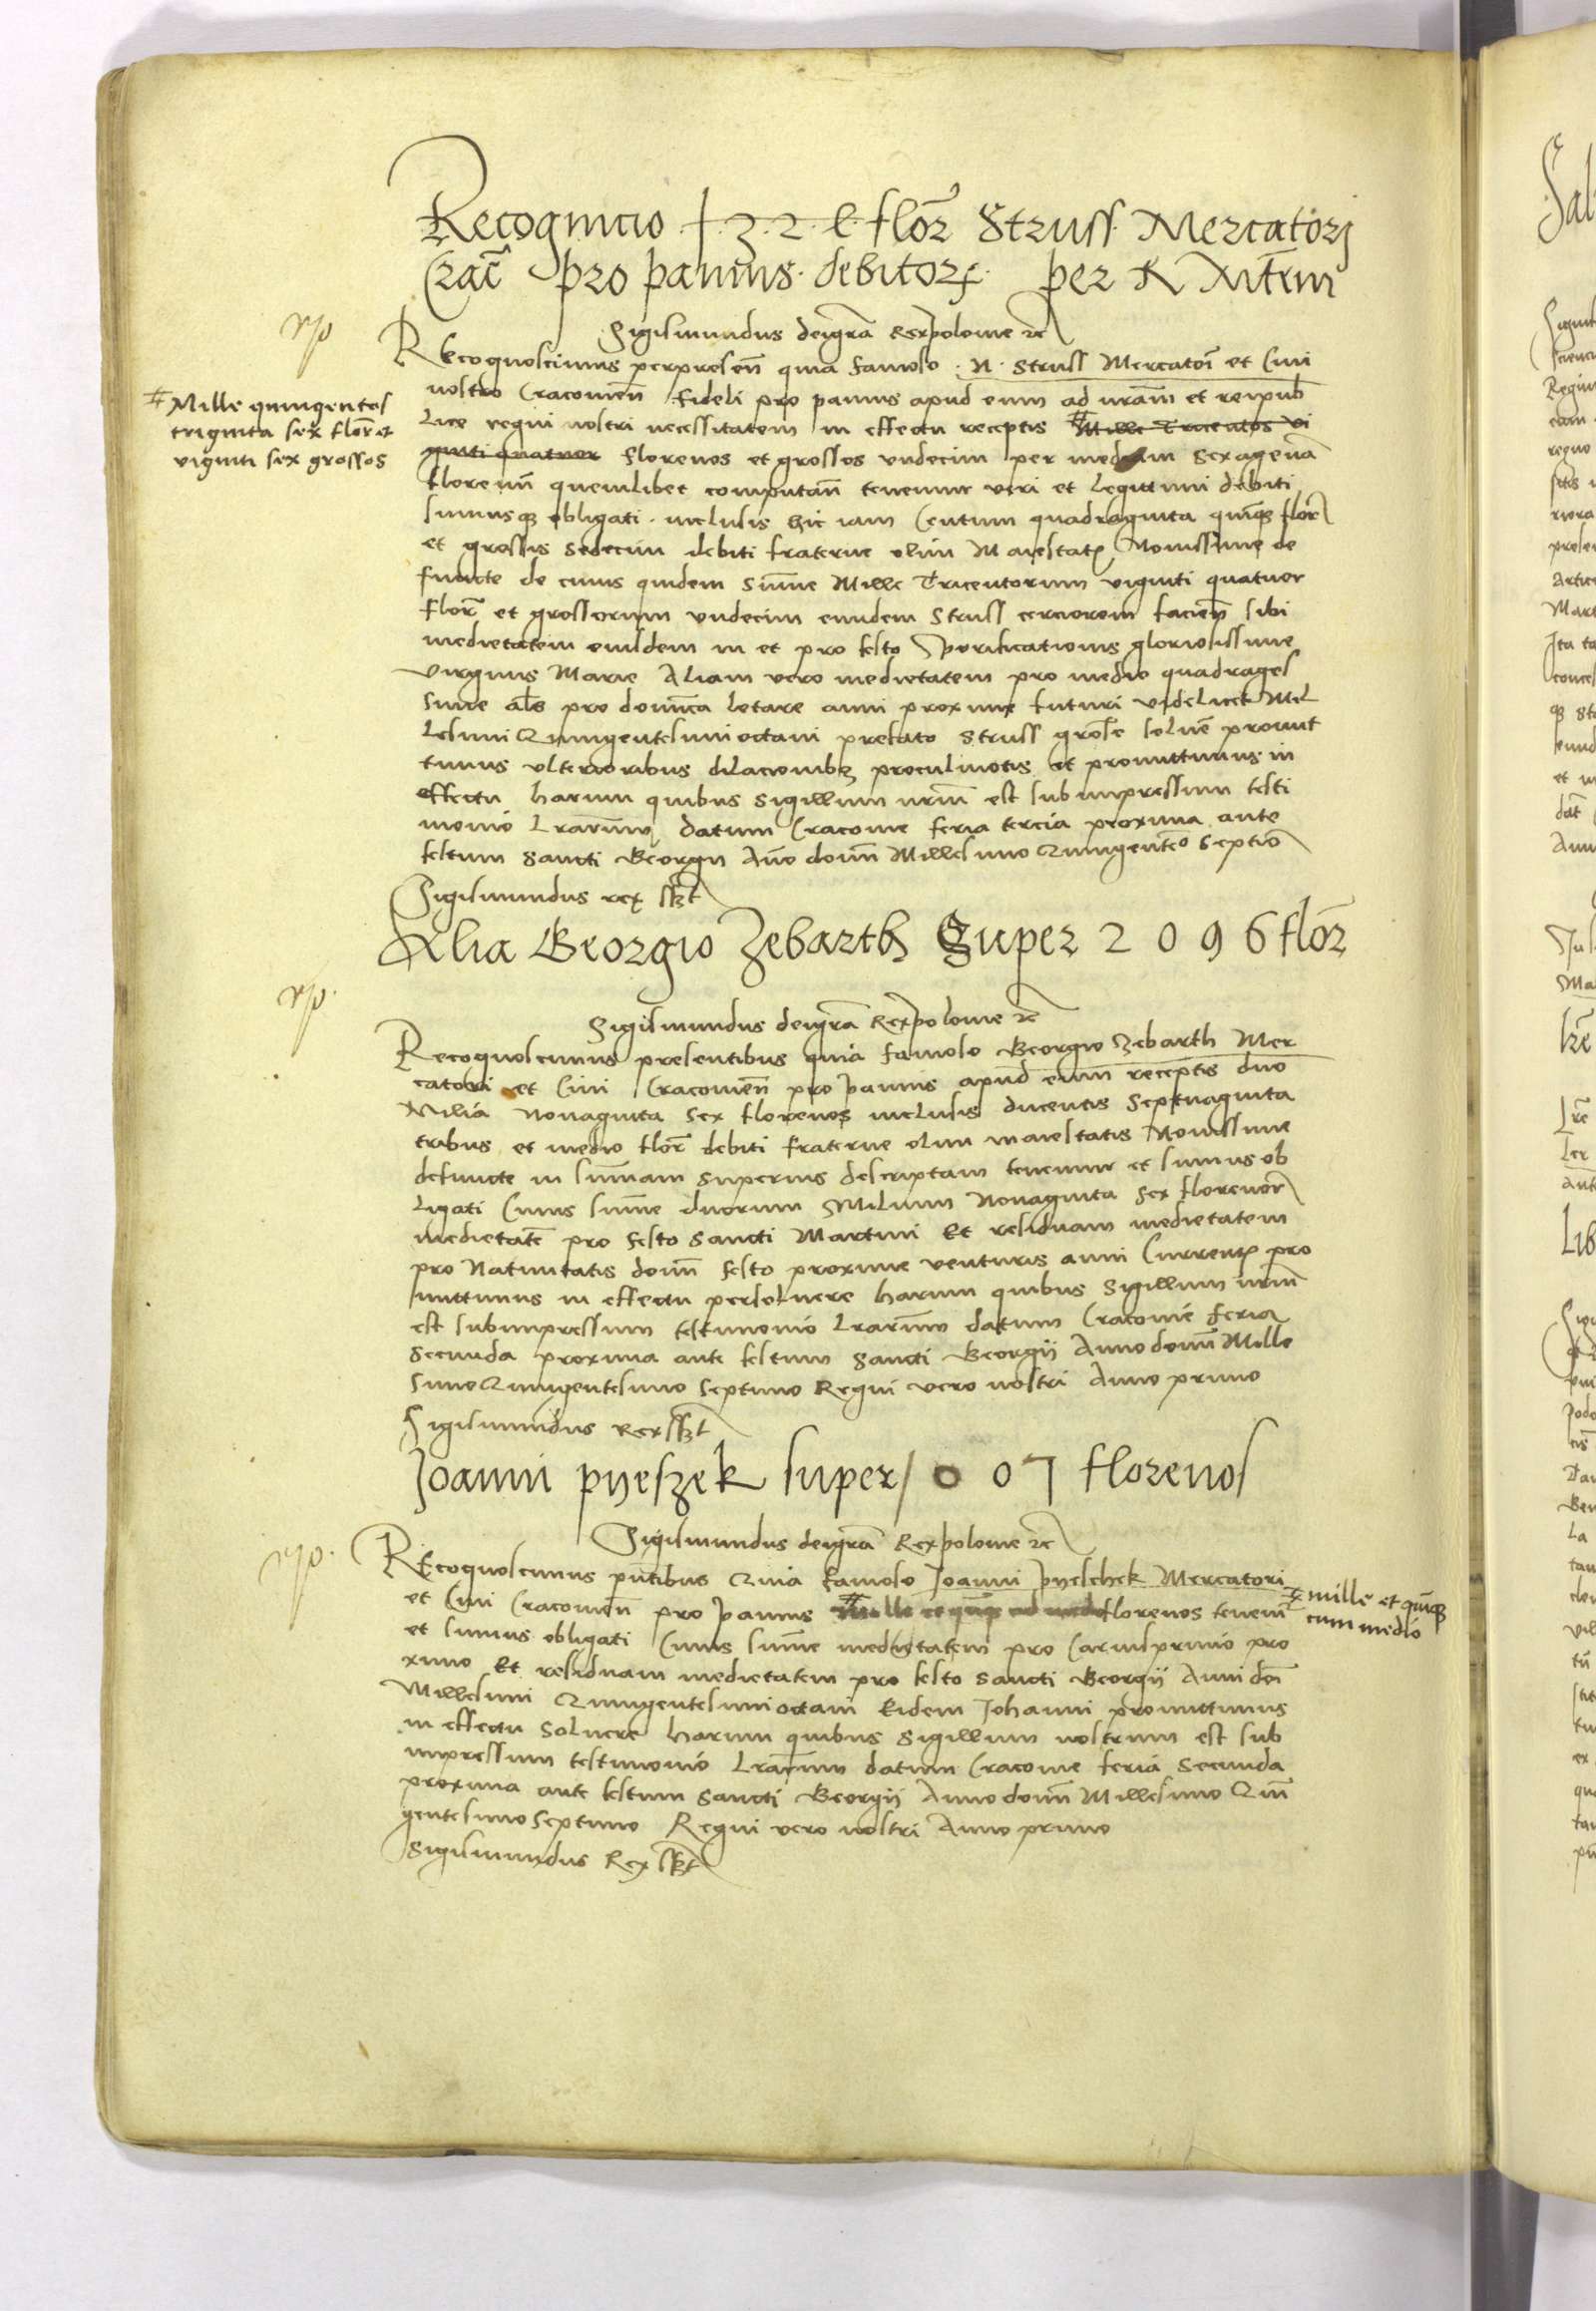 Recognicio 1 3 2 4 florꝝ Struss Mercatori
Crac̃ pro pannis debitorꝝ per
Sigismundus dei grã Rex polonie ꝛc
Recognoscimus per presen̄ quia famoso N Struss Mercatori et Civi
nostro Cracovien̄ fideli pro pannis apud eum ad nrãm et reipub
lice regni nostri necessitatem in effectu receptis Mille Tricentos vi
ginti quatuor florenos et grossos undecim per mediam sexagenã
florenũ quemlibet computan̄ tenemur veri et legittimi debiti
sumusqꝫ obligati inclusis hic iam Centum quadraginta quinqꝫ florꝝ
et grossis sedecim debiti fraterne olim Maiestatꝭ Novissime de
functe de cuius quidem sum̄e Mille Tricentorum viginti quatuor
florꝝ et grossorum undecim eundem Struss cerciorem facien̄ sibi
medietatem eiusdem in et pro festo purificationis gloriosissime
virginis Marie Aliam vero medietatem pro medio quadrages
sime als pro domĩca letare anni proxime futuri videlicet Mil
lesimi Quingentesimi octavi prefato Struss solvẽ promit
timus ulterioribus dilacionibꝫ procul motis et promittimus in
effectu harum quibus sigillum nrũm est subimpressum testi
monio lrarum datum Cracovie feria tercia proxima ante
festum sancti Georgii Año domĩ Millesimo Quingenteo septĩo
Sigismundus rex sszt
Alia Georgio Zebarth Super 2 0 9 6 florꝝ
Sigismundus dei grã Rex polonie ꝛc
Recognoscimus presentibus quia famoso Georgio Zebarth Mer
catori et Civi Cracovien̄ pro pannis apud eum receptis duo
Milia Nonaginta sex florenos inclusis ducentis septuaginta
tribus et medio florꝝ debiti fraterne olim maiestatis Novissime
defuncte in sum̄am superius descriptam tenemur et sumus ob
ligati Cuius sum̄e duorum Milium Nonaginta sex florenorꝝ
medietatẽ pro festo sancti Martini Et residuam medietatem
pro Nativitatis domĩ festo proxime venturis anni Currentꝭ pro
mittimus in effectu persolvere harum quibus sigillum nrũm
est subimpressum testimonio lrarum datum Cracovie feria
secunda proxima ante festum sancti Georgij Anno domĩ Mille
simo Quingentesimo septimo Regni vero nostri Anno primo
Sigismundus Rex sszt
Joanni pyeszek super 1 0 0 7 florenos
Sigismundus dei grã Rex polonie ꝛc
Recognoscimus pñtibus Quia famoso Joanni pyeschek Mercatori
et Civi Cracovien̄ pro pannis Mille florenos tenem̃
et sumus obligati Cuius sum̄e medietatem pro Carnisprivio pro
ximo Et residuam medietatem pro festo sancti Georgij Anni dñi
Millesimi Quingentesimi octavi Eidem Johanni promittimus
in effectu solvere harum quibus sigillum nostrum est sub
impressum testimonio lrarum datum Cracovie feria secunda
proxima ante festum sancti Georgij Anno domĩ Millesimo Quin
gentesimo septimo Regni vero nostri Anno primo
Sigismundus Rex sszt
Mille quingentos
triginta sex florꝝ et
viginti sex grossos
mille et quinqꝫ
cum medio